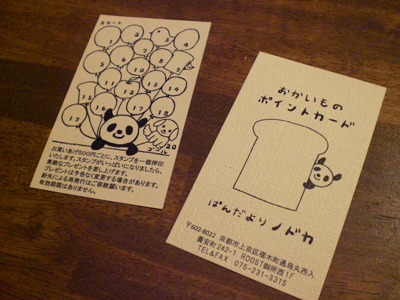 スタート
1
2
3
4
5
6
7
8
9
10
11
12
13
14
15
16
17
18
19
20
お買いあげ500円ごとに、スタンプを一個押印
いたします。スタンプがいっぱいになりましたら、
素敵なプレゼントを差し上げます。
プレゼントは予告なく変更する場合があります。
紛失による再発行はご容赦願います。
有効期限はありません。
おかいもの
ポイントカード
ぱんだより ノドカ
〒602-8022 京都市上京区椹木町通烏丸西入
養安町242-1 ROOST御所西1F
TEL&FAX 075-231-3315